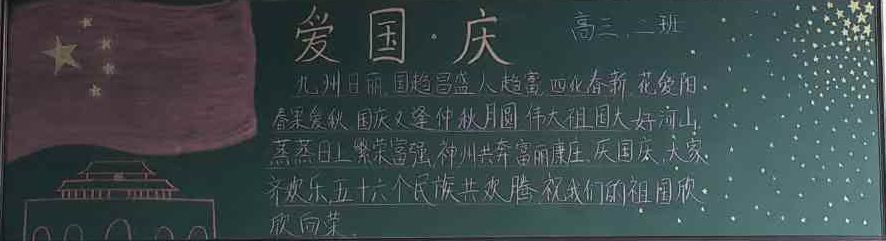 爱国·庆
高三.二班
九州日丽,国趋昌盛人趋富,四化春新,花爱阳
春果爱秋,国庆又逢仲秋月圆,伟大祖国大好河山,
蒸蒸日上繁荣富强,神州共奔富丽康庄、庆国庆、大家
齐欢乐,五十六个民族共欢腾,祝我们的祖国欣
欣向荣.